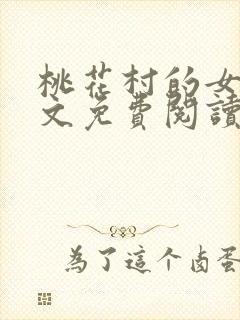 桃花村的女
文免費閱讀
為了這个卤蛋